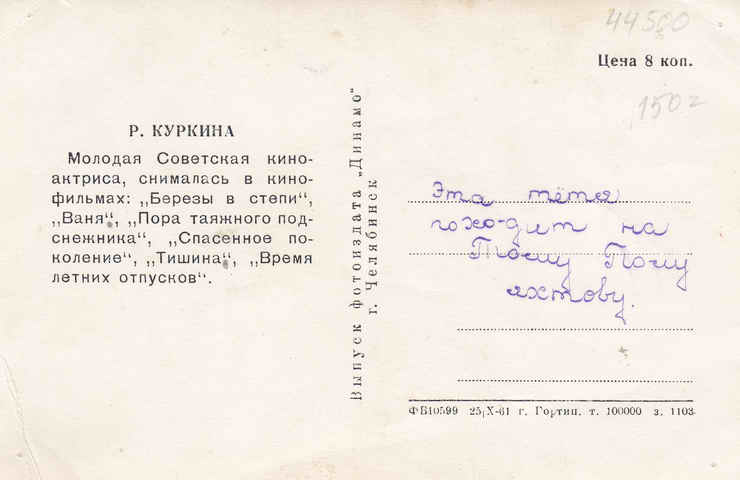 44500
Цена 8 коп.
150 г
Р. КУРКИНА
Молодая Советская кино-
актриса, снималась в кино-
фильмах: „Березы в степи“,
„Ваня“, „Пора таяжного под-
снежника“, „Спасенное по-
коление“, „Тишина“, „Время
летних отпусков“.
Выпуск фотоиздата „Динамо“
г. Челябинск
Эта тётя
походит на
Тому
яхтову.
ФБ10599 25/X-61 г. Гортип. т. 100000 з. 1103